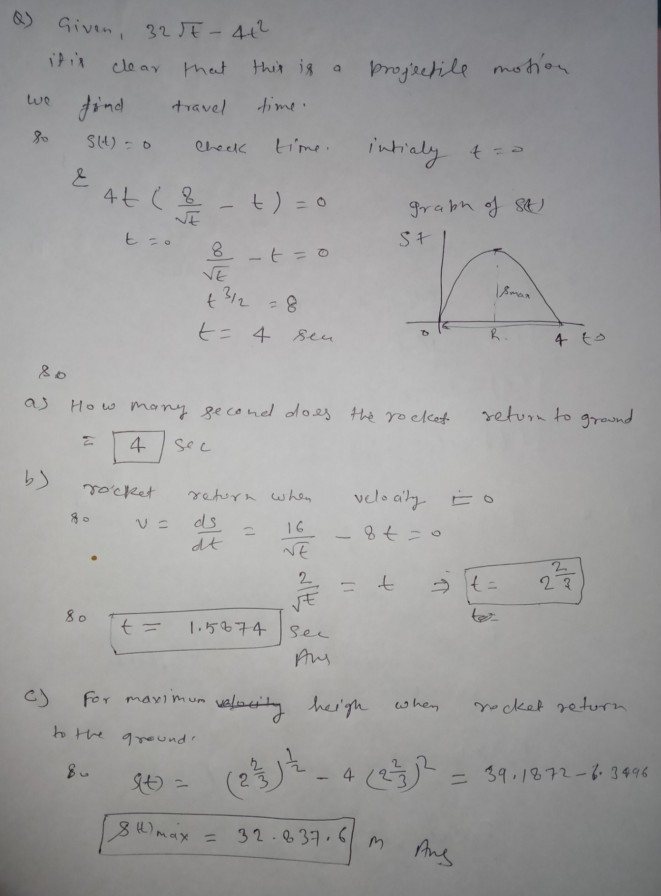 Q) Given, 32√t - 4t²
it is clear that this is a projectile motion
we find travel time.
so S(t) = 0 check time. intialy t = 0
& 4t ( 8/√t - t ) = 0
graph of S(t)
t = 0
8/√t - t = 0
t^3/2 = 8
t = 4 sec
S t
Smax
0 R. 4 t→
so
a) How many second does the rocket return to ground
= 4 sec
b) rocket return when velocity = 0
so v = ds/dt = 16/√t - 8t = 0
2/√t = t ⇒ t = 2^2/3
so t = 1.5874 sec
Ans
c) For maximum velocity heigh when rocket return
to the ground.
so s(t) = (2^2/3)^1/2 - 4 (2^2/3)^2 = 39.1872 - 6.3496
S(t)max = 32.837.6 m Ans